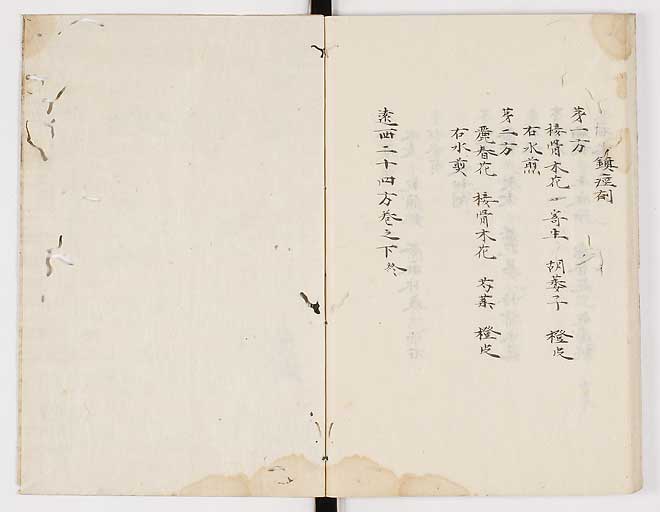 鎮痙剤
第一方
接骨木花 寄生 胡荽子 橙皮
右水煎
第二方
麗春花 接骨木花 芍薬 橙皮
右水煎
遠西二十四方巻之下終